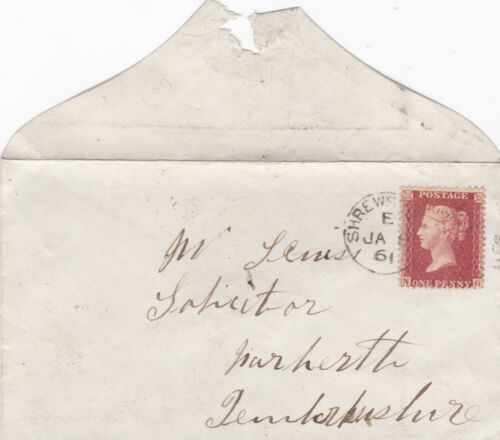 POSTAGE
SHREWS
E
JA
61
ONE PENNY
Mr Lewis
Solicitor
Narberth
Pembrokeshire